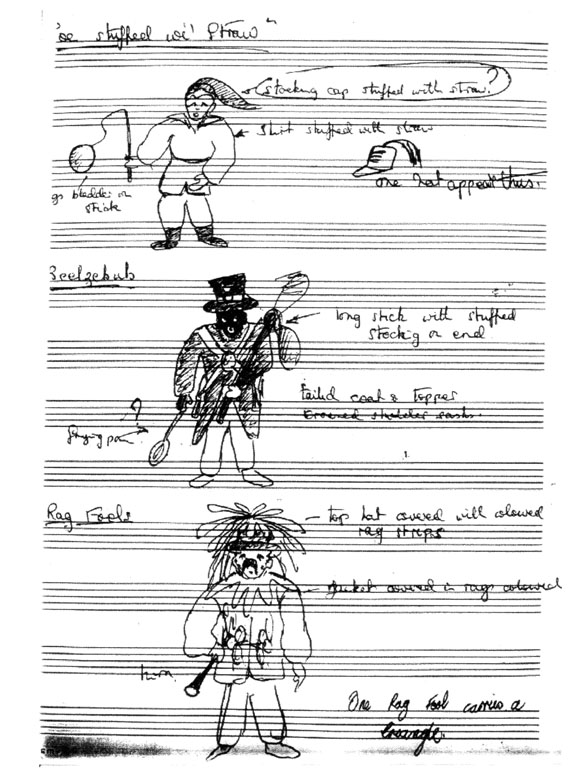 'oe stuffed wi' Straw"
Stocking cap stuffed with straw?
Shirt stuffed with straw
gs bladder on
stick
one hat appears thus.
Beelzebub
long stick with stuffed
stocking on end
Tailed coat & Topper
shoulder sash.
?
frying pan
Rag Fools
top hat covered with coloured
rag strips
jacket covered in rags coloured
horn
One Rag Fool carries a
triangle.